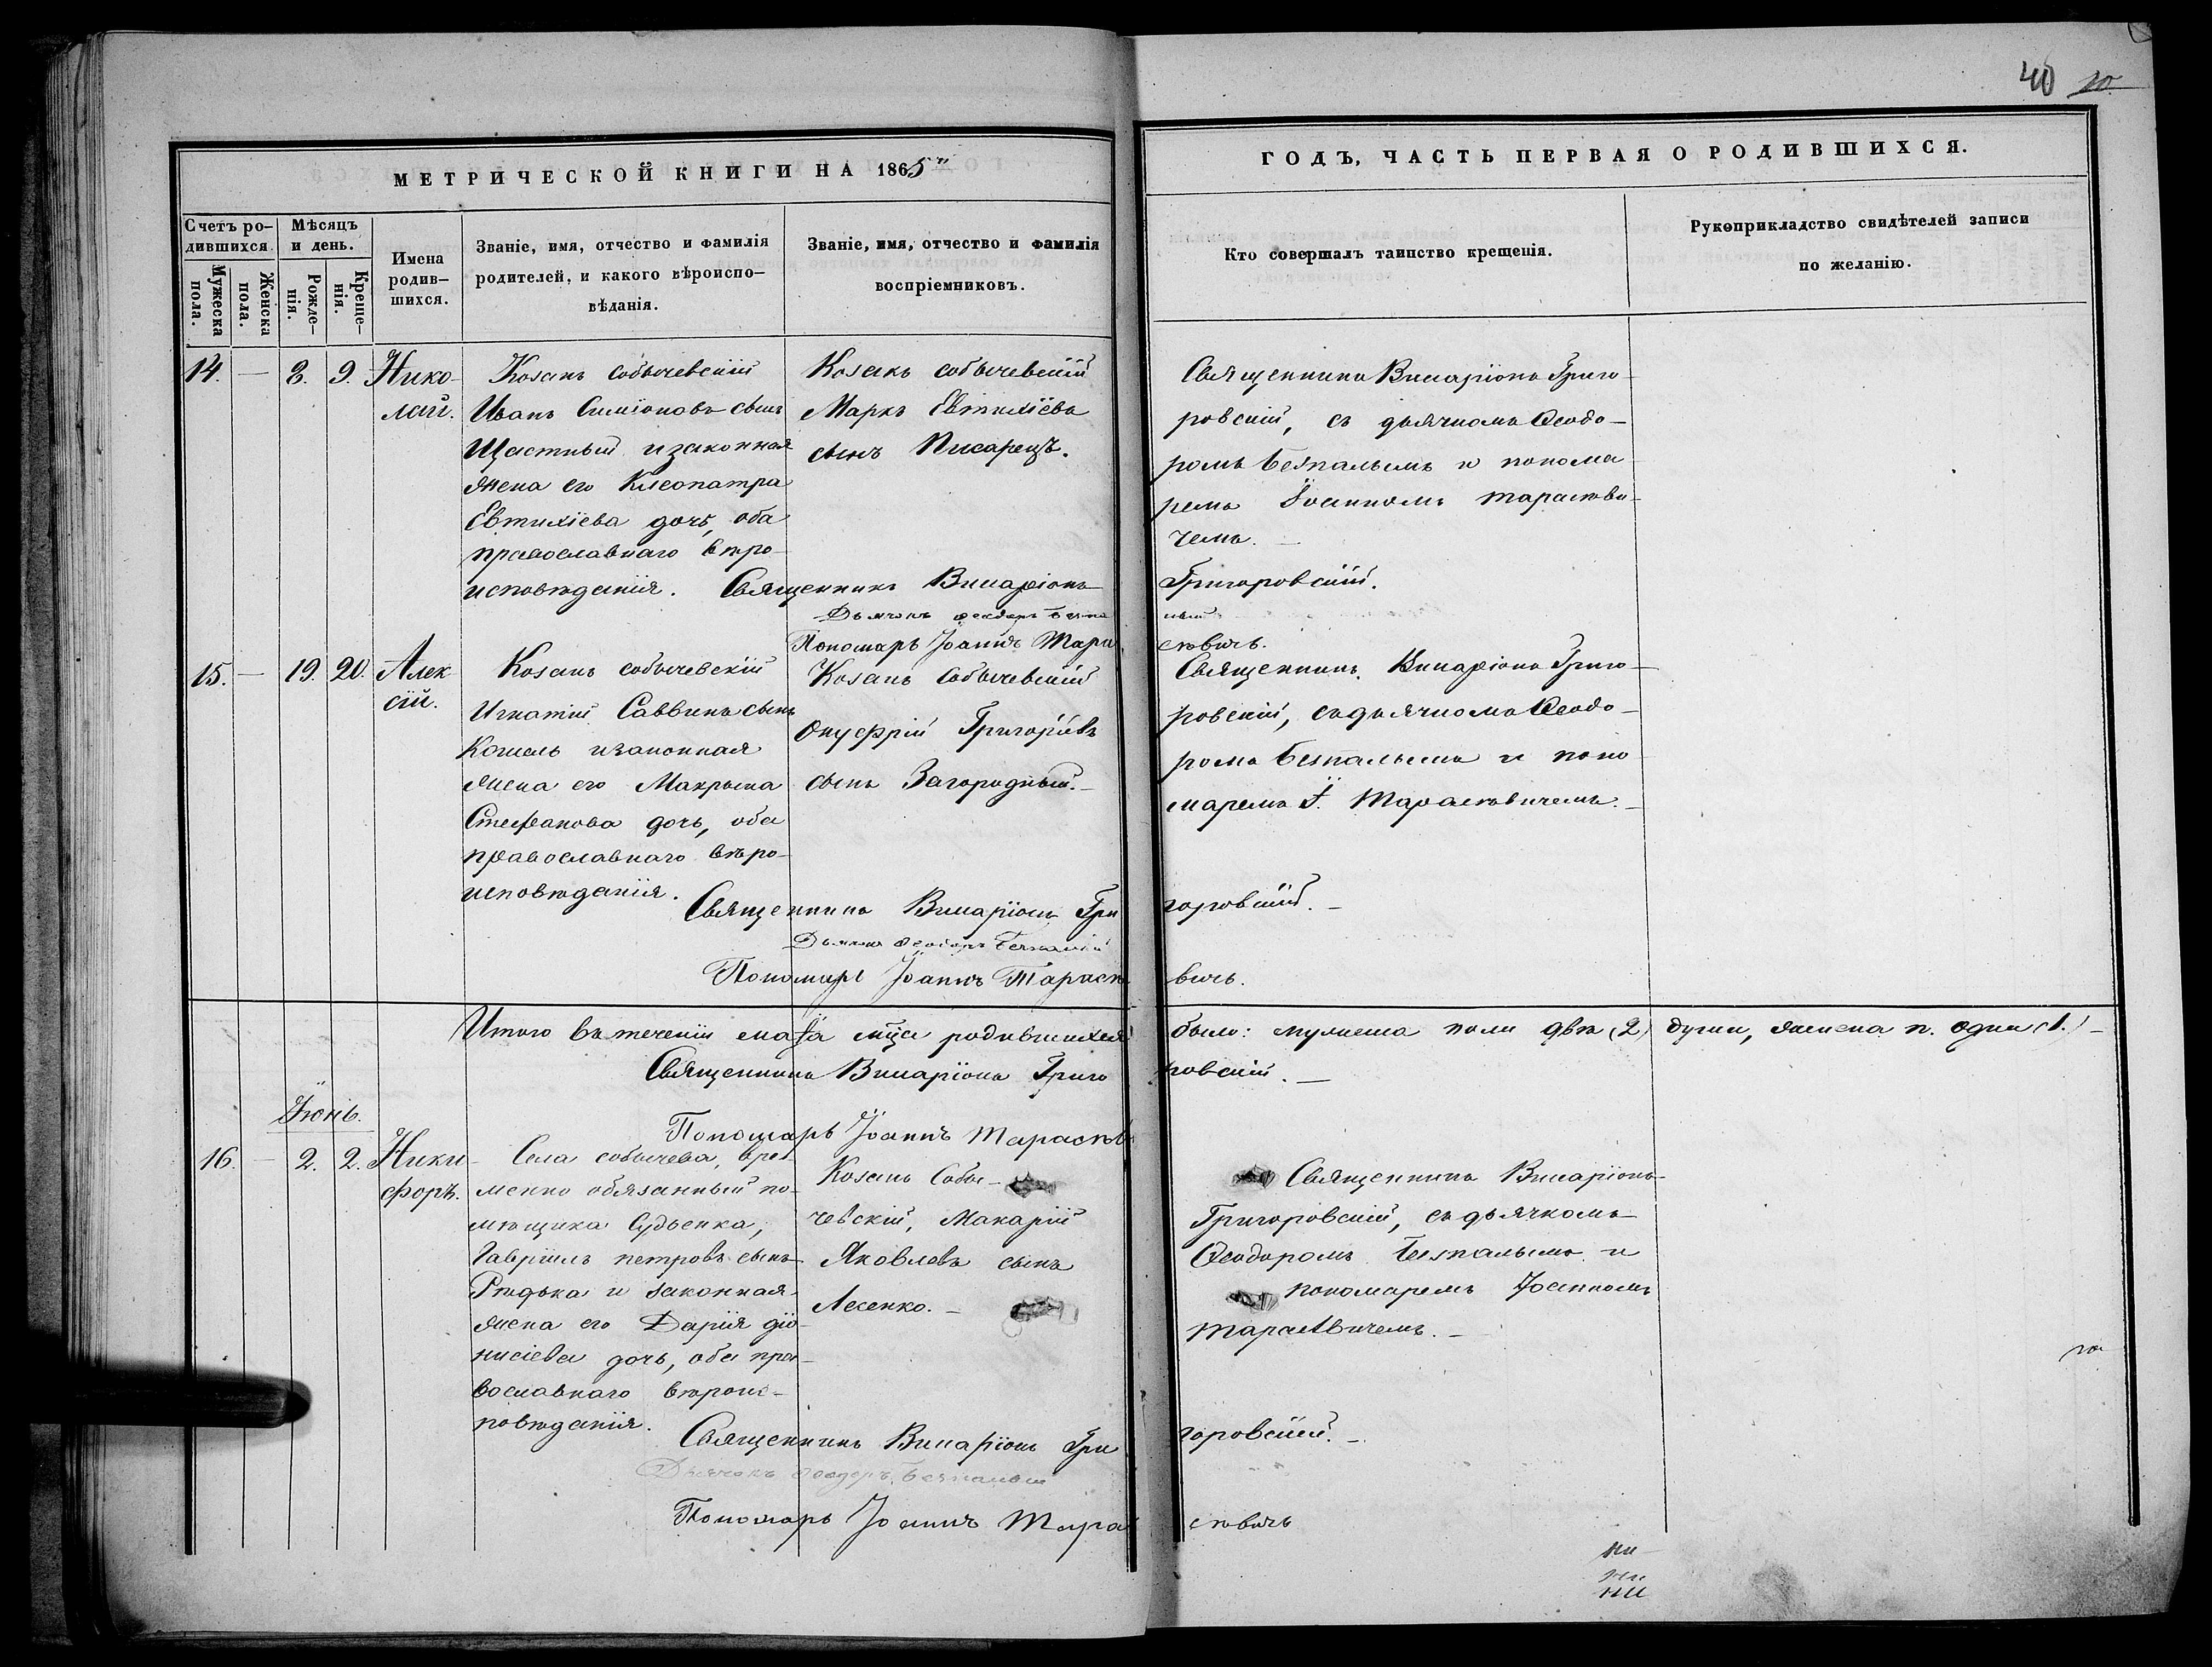 40 10
МЕТРИЧЕСКОЙ КНИГИ НА 1865й
ГОДЪ, ЧАСТЬ ПЕРВАЯ О РОДИВШИХСЯ.
Счетъ ро-
дившихся
Мужеска
пола.
Женска
пола.
Мѣсяцъ
и день.
Рожде-
нія.
Креще-
нія.
Имена
родив-
шихся.
Званіе, имя, отчество и фамилія
родителей, и какого вѣроиспо-
вѣданія.
Званіе, имя, отчество и фамилія
воспріемниковъ.
Кто совершалъ таинство крещенія.
Рукоприкладство свидѣтелей записи
по желанію.
14. — 8. 9. Нико-
лай.
Козакъ собычевскій
Иванъ Симіоновъ сынъ
Щастный и законная
жена его Клеопатра
Евтихіева дочь, оба
православнаго вѣро-
исповѣданія.
Козакъ собычевскій
Маркъ Евтихіевъ
сынъ Писарецъ.
Священникъ Виларіонъ Григо-
ровскій, съ дьячкомъ Ѳеодо-
ромъ Безпалымъ и понома
ремъ Іоанномъ Тарасеви-
чемъ. —
Священникъ Виларіонъ Григоровскій.
Дьячокъ Ѳеодоръ Безпалый
Пономарь Іоаннъ Тарасевичъ.
15. — 19. 20. Алек
сій.
Козакъ собычевскій
Игнатій Саввинъ сынъ
Кошель и законная
жена его Макрына
Стефанова дочь, оба
православнаго вѣро-
исповѣданія.
Козакъ Собычевскій
Онуфрій Григоріевъ
сынъ Загородный. —
Священникъ Виларіонъ Григо-
ровскій, съ дьячкомъ Ѳеодо-
ромъ Безпалымъ и поно
маремъ І. Тарасевичемъ. —
Священникъ Виларіонъ Григоровскій. —
Дьячокъ Ѳеодоръ Безпалый
Пономарь Іоаннъ Тарасевичъ.
Итого въ теченіи маіа мца родившихся было: мужеска пола двѣ (2) души, женска п. одна (1.) —
Священникъ Виларіонъ Григоровскій. —
Пономарь Іоаннъ Тарасев
Іюнь.
16. — 2. 2. Ники-
форъ.
Села собычева, вре-
менно обязанный по-
мѣщика Судьенка,
Гавріилъ петровъ сынъ
Рѣдька и законная
жена его Дарія діо-
нисіева дочь, оба пра-
вославнаго вѣроис-
повѣданія.
Козакъ Собы-
чевскій, Макарій
Яковлевъ сынъ
Лесенко. —
Священникъ Виларіонъ
Григоровскій, съ дьячкомъ
Ѳеодоромъ Безпалымъ и
пономаремъ Іоанномъ
Тарасевичемъ. —
Священникъ Виларіонъ Григоровскій. —
Дьячокъ Ѳеодоръ Безпалый
Пономарь Іоаннъ Тарасевичъ
ни
ни
ни